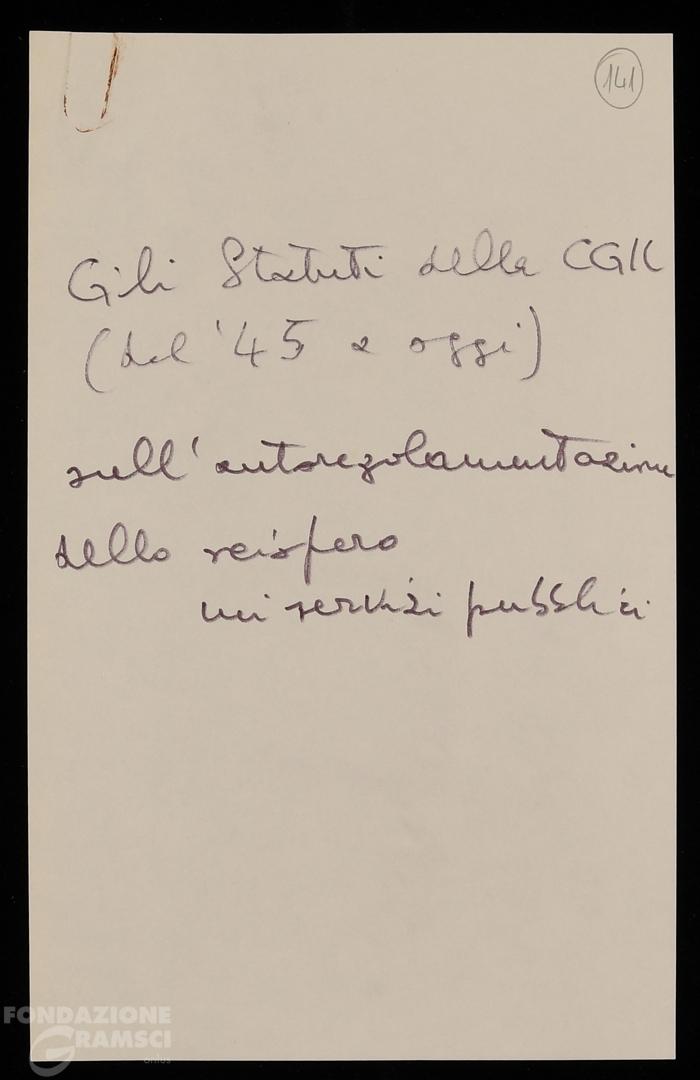 141
Gli Statuti della CGIL
(dal '45 a oggi)
sull'autoregolamentazione
dello sciopero
nei servizi pubblici
FONDAZIONE
GRAMSCI
onlus